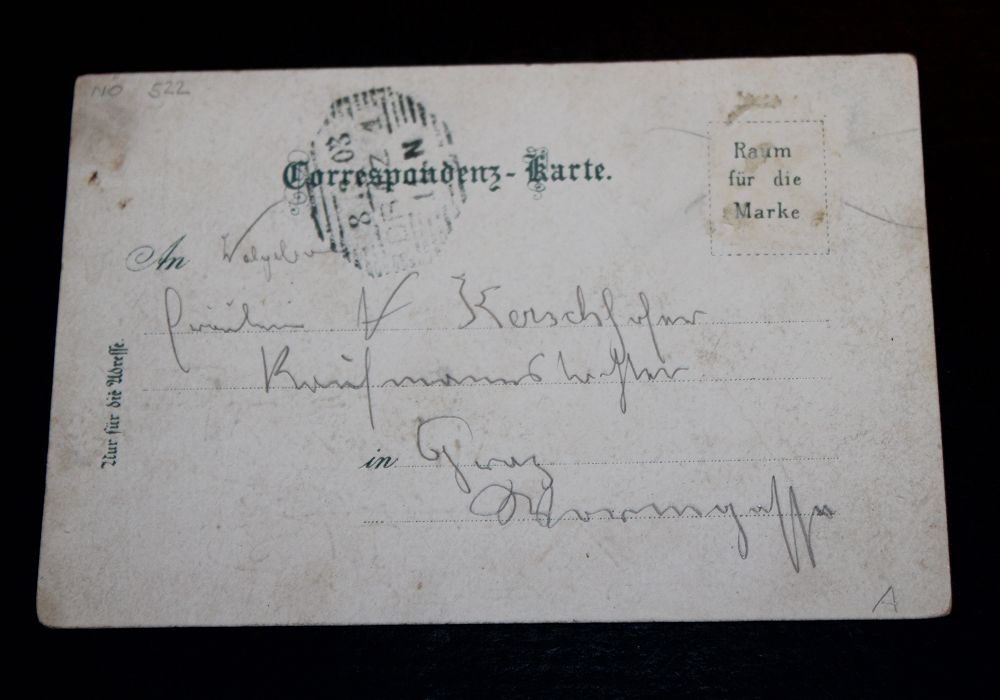 NO 522
8 03
N
Correspondenz-Karte.
Raum
für die
Marke
An
Fräulein Kerschhofer
Kaufmannstochter
in Graz
Nur für die Adresse.
A